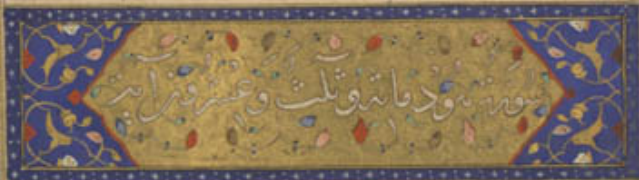 سورة هود مائة وثلث وعشرون آية